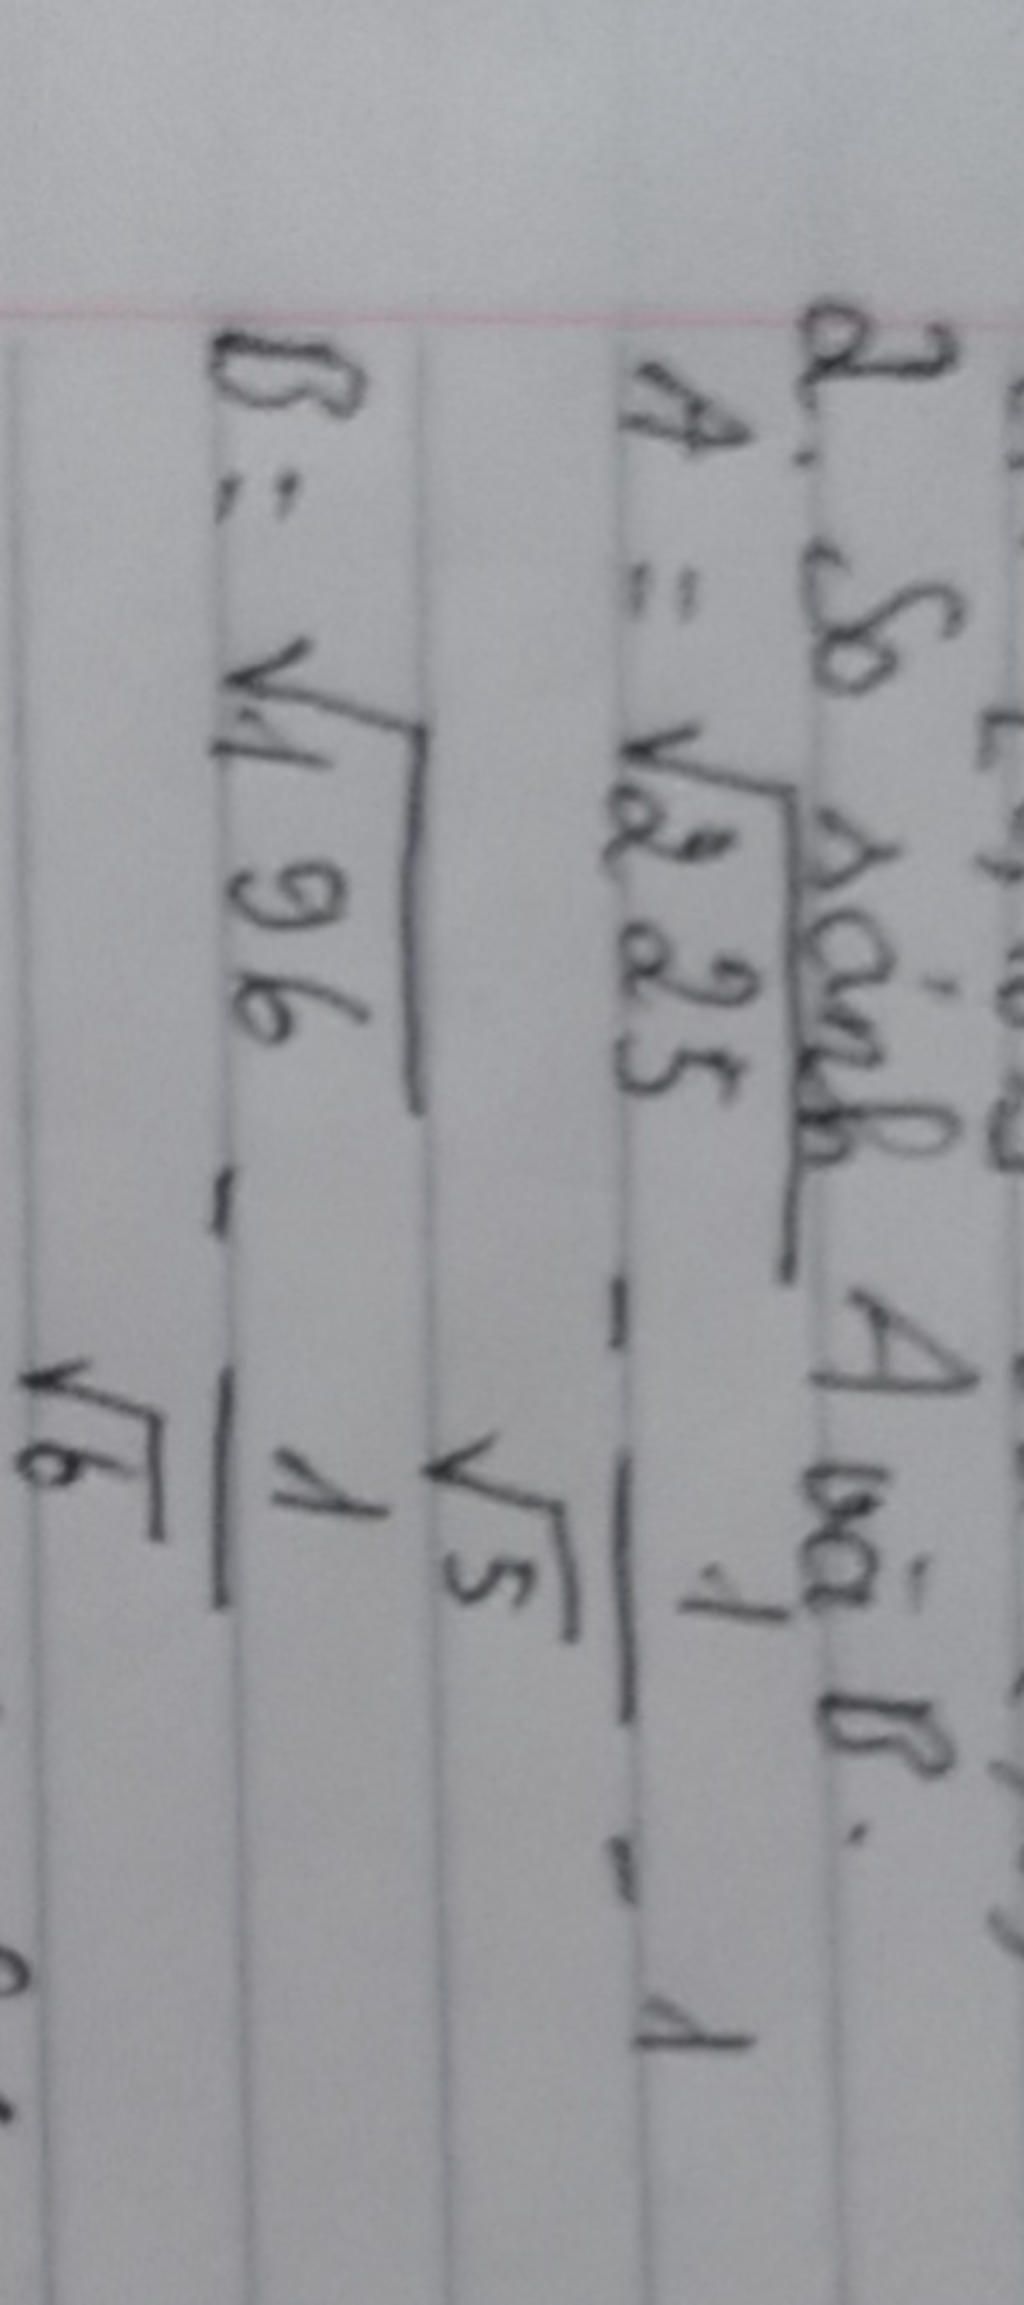 2. So sánh A và B.
A = √225 - 1/√5 - 1
B = √196 - 1/√6